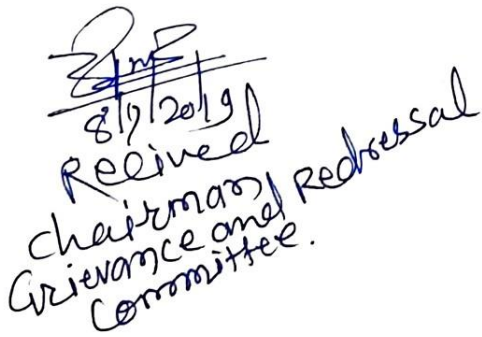 8/7/2019
Recived
chairman,
Grievance and Redressal
Committee.